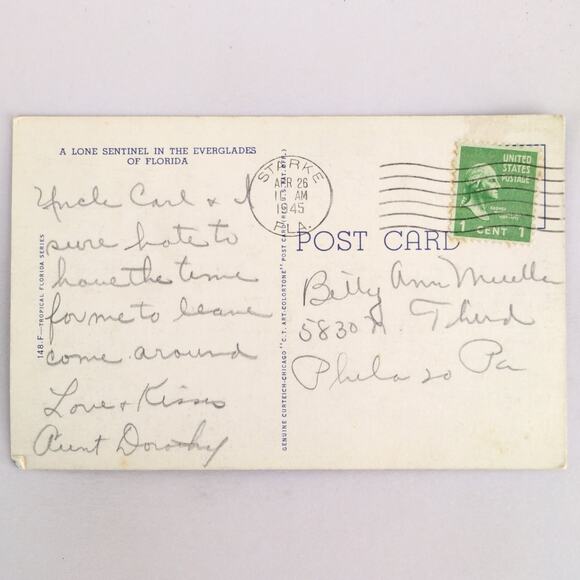 A LONE SENTINEL IN THE EVERGLADES
OF FLORIDA
Uncle Carl & I
sure hate to
have the time
for me to leave
come around
Love & Kisses
Aunt Dorothy
148.F—TROPICAL FLORIDA SERIES
GENUINE CURTEICH-CHICAGO "C.T. ART-COLORTONE" POST CARD (REG. U.S. PAT. OFF.)
STARKE
APR 26
AM
1945
FLA.
UNITED
STATES
POSTAGE
1 CENT 1
POST CARD
Betty Ann Mueller
5830 N. Third
Phila 20 Pa